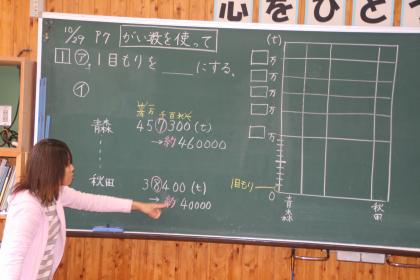 心をひとつ
10/29 P7 がい数を使って
1 ㋐ 1目もりを____にする。
㋑
十万 一万 千百十一
青森 457300(t)
→約460000
秋田 38400(t)
→約40000
(t)
□万
□万
□万
□万
□万
1目もり
0
青森 秋田